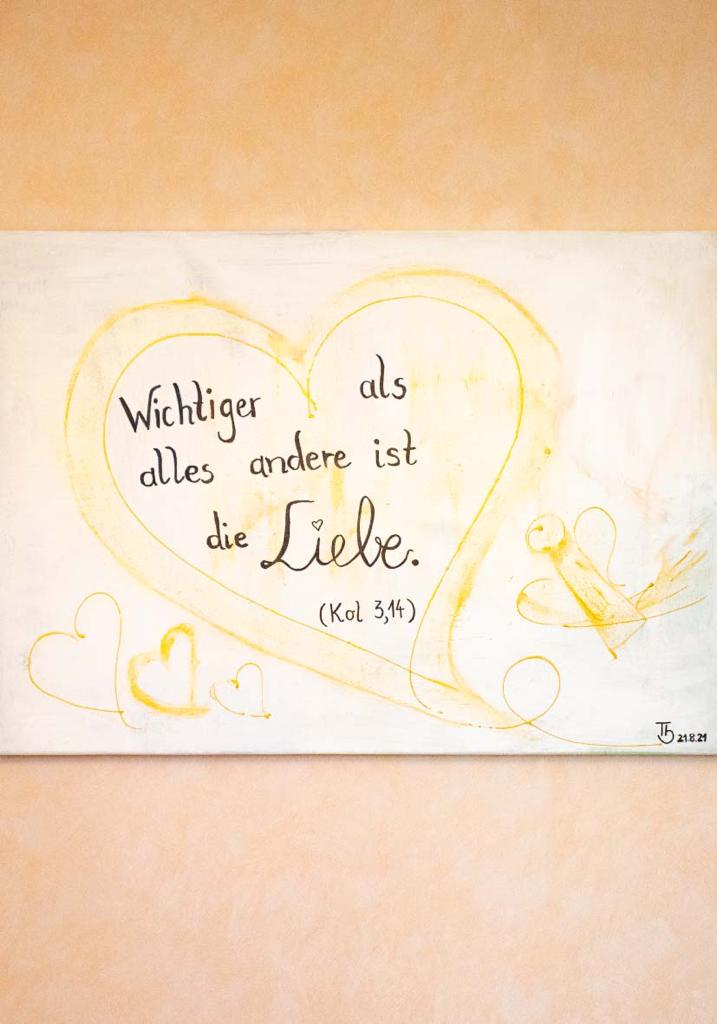 Wichtiger als
alles andere ist
die Liebe.
(Kol 3,14)
21.8.21